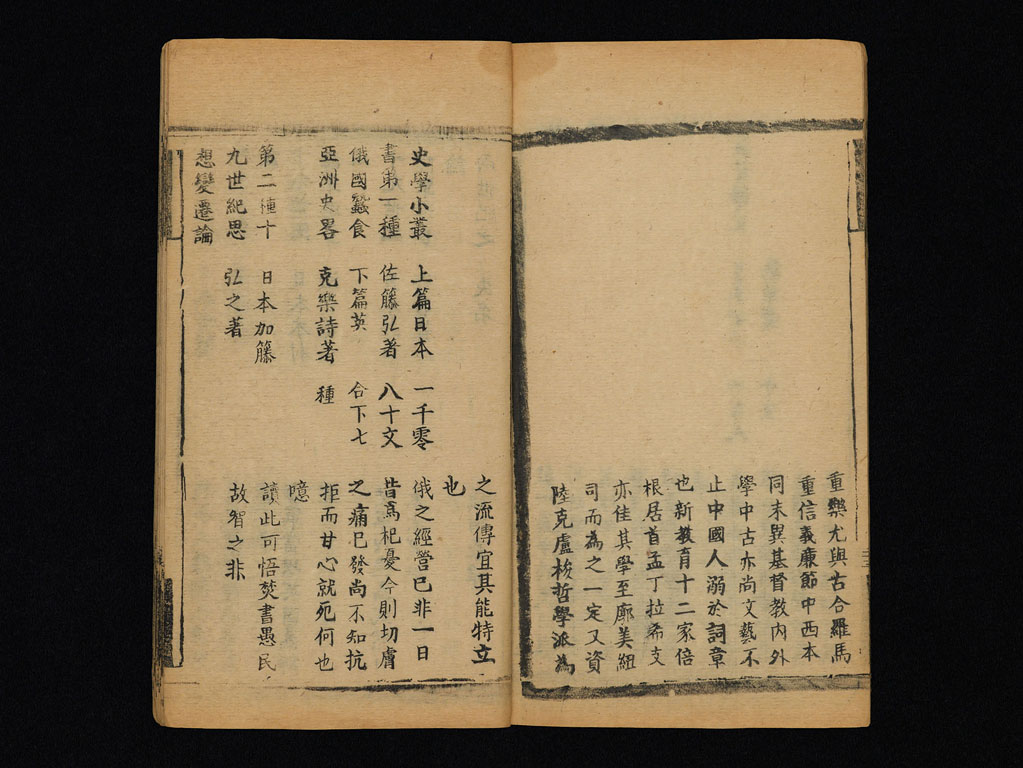 重樂尤與古合羅馬
重信義廉節中西本
同末異基督教內外
學中古亦尚文藝不
止中國人溺於詞章
也新教育十二家倍
根居首孟丁拉希支
亦佳其學至廊美紐
司而為之一定又資
陸克盧梭哲學派為
之流傳宜其能特立
也
史學小叢
書第一種
俄國蠶食
亞洲史畧
上篇日本
佐籐弘著
下篇英
克樂詩著
一千零
八十文
合下七
種
俄之經營已非一日
昔為杞憂今則切膚
之痛已發尚不知抗
拒而甘心就死何也
噫
第二種十
九世紀思
想變遷論
日本加籐
弘之著
讀此可悟焚書愚民
故智之非